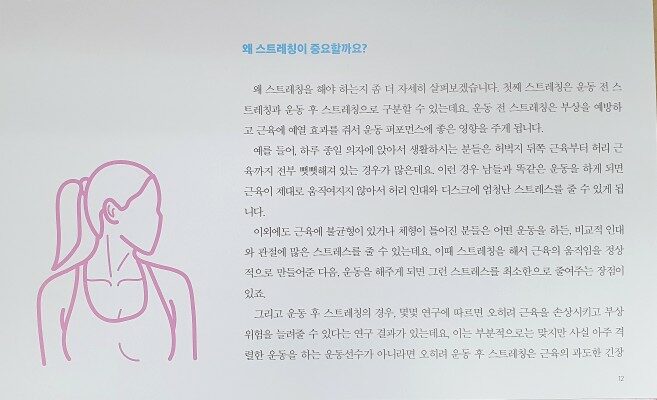 왜 스트레칭이 중요할까요?
왜 스트레칭을 해야 하는지 좀 더 자세히 살펴보겠습니다. 첫째 스트레칭은 운동 전 스
트레칭과 운동 후 스트레칭으로 구분할 수 있는데요. 운동 전 스트레칭은 부상을 예방하
고 근육에 예열 효과를 줘서 운동 퍼포먼스에 좋은 영향을 주게 됩니다.
예를 들어, 하루 종일 의자에 앉아서 생활하시는 분들은 허벅지 뒤쪽 근육부터 허리 근
육까지 전부 뻣뻣해져 있는 경우가 많은데요. 이런 경우 남들과 똑같은 운동을 하게 되면
근육이 제대로 움직여지지 않아서 허리 인대와 디스크에 엄청난 스트레스를 줄 수 있게 됩
니다.
이외에도 근육에 불균형이 있거나 체형이 틀어진 분들은 어떤 운동을 하든, 비교적 인대
와 관절에 많은 스트레스를 줄 수 있는데요. 이때 스트레칭을 해서 근육의 움직임을 정상
적으로 만들어준 다음, 운동을 해주게 되면 그런 스트레스를 최소한으로 줄여주는 장점이
있죠.
그리고 운동 후 스트레칭의 경우, 몇몇 연구에 따르면 오히려 근육을 손상시키고 부상
위험을 늘려줄 수 있다는 연구 결과가 있는데요. 이는 부분적으로는 맞지만 사실 아주 격
렬한 운동을 하는 운동선수가 아니라면 오히려 운동 후 스트레칭은 근육의 과도한 긴장
12